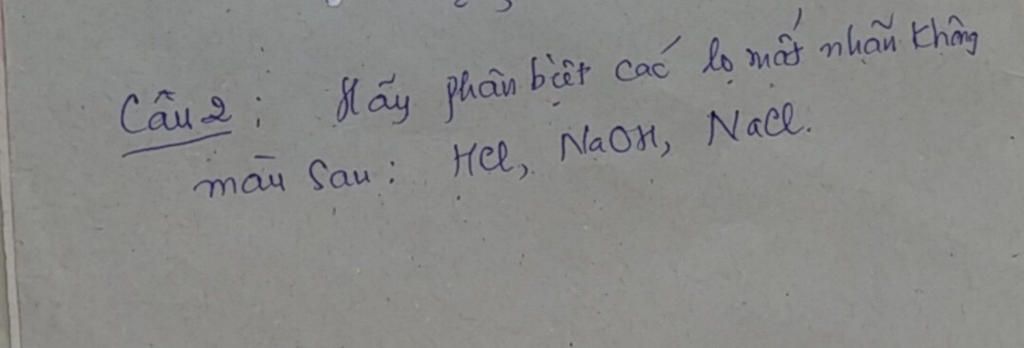 Câu 2 : Hãy phân biệt các lọ mất nhãn không
màu sau : HCl, NaOH, NaCl.